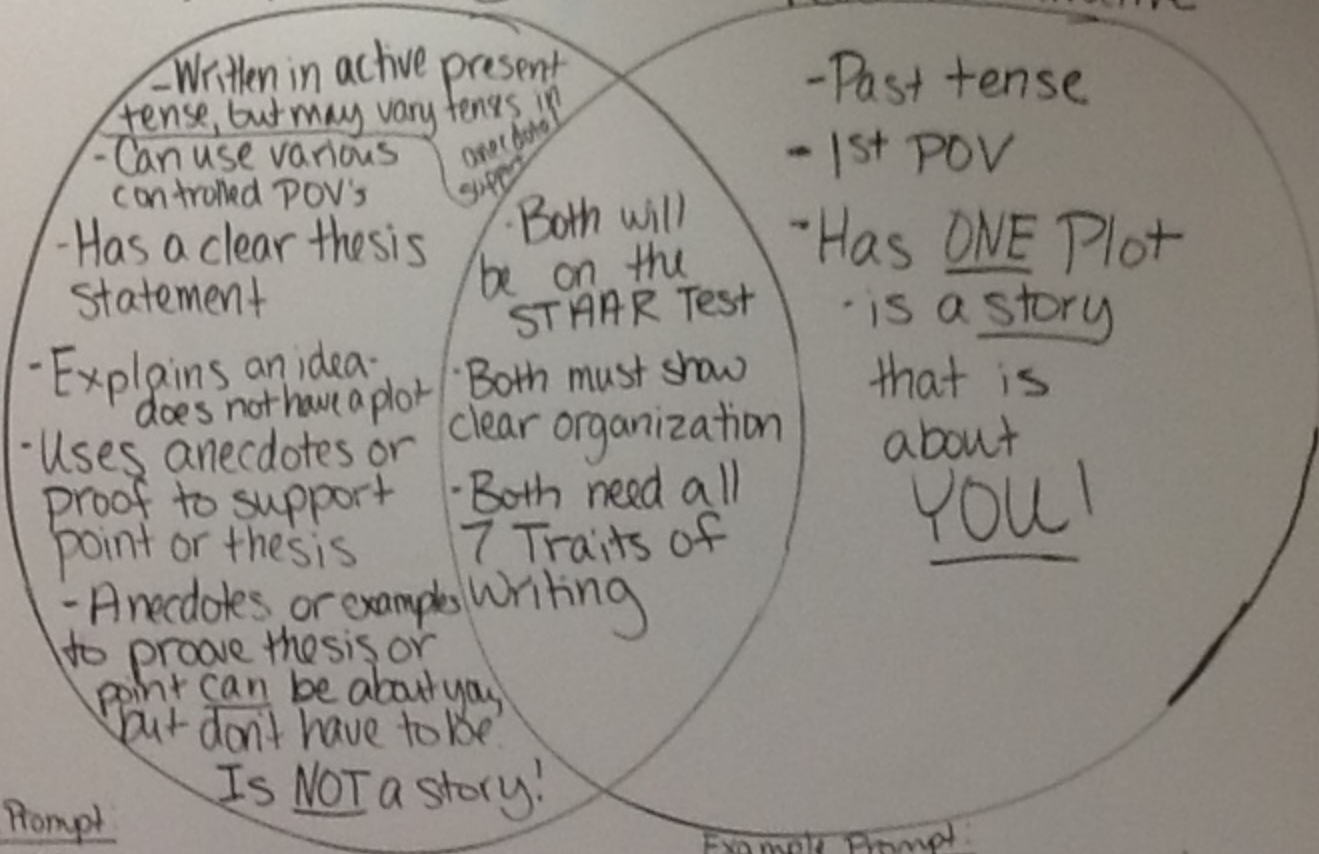 -Written in active present
tense, but may vary tenses in
anecdotal
support
-Can use various
controlled POV's
-Has a clear thesis
statement
-Explains an idea-
does not have a plot
-Uses anecdotes or
proof to support
point or thesis
-Anecdotes or examples
to proove thesis or
point can be about you,
but don't have to be
Is NOT a story!
·Both will
be on the
STAAR Test
·Both must show
clear organization
·Both need all
7 Traits of
Writing
-Past tense
-1st POV
-Has ONE Plot
·is a story
that is
about
YOU!
Prompt:
Example Prompt: